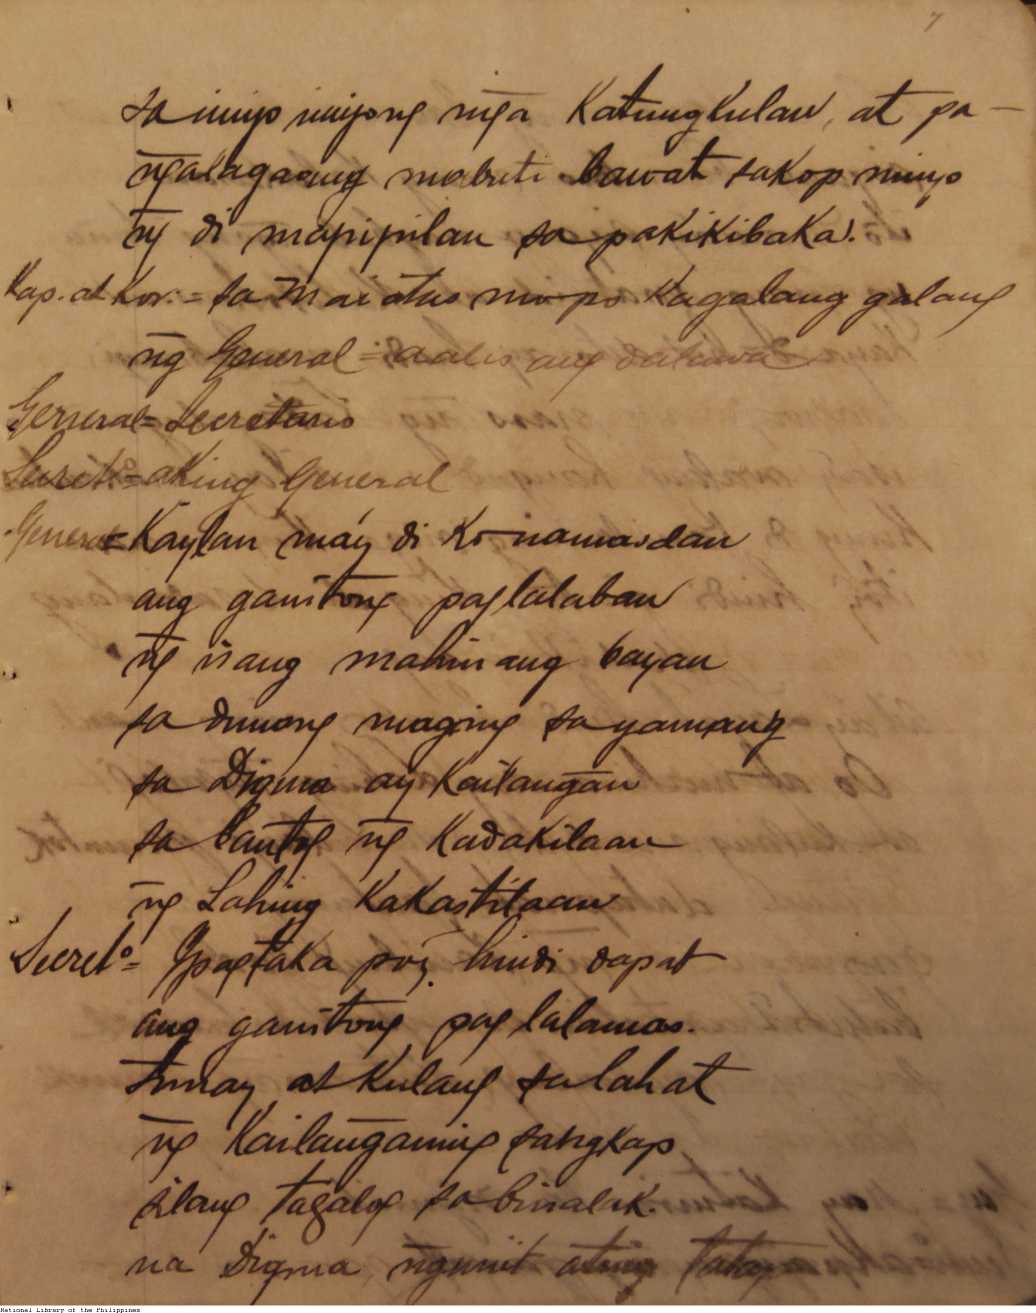 7
sa inyo inyong mga Katungkulan, at pa-
ngalagaang mabuti bawat sakop ninyo
ng di mapipilan sa pakikibaka.
Kap. at Kor. = Sa mai atas mo po Kagalang galang
ng General = aalis ang dalawa
General = Secretario
Secret.º = aking General
General = Kaylan máy di Ko namasdan
ang ganitong paglalaban
ng isang mahinang bayan
sa dunong maging sa yamang
sa Digma ay Kailangan
sa bantog ng Kadakilaan
ng Lahing Kakastilaan
Secretº = Ypagtaka pó, hindi dapat
ang ganitong pag lalamas.
tunay at Kulang sa lahat
ng Kailanganing sangkap
silang tagalog sa binalak.
na Digma, ngunit ating
National Library of the Philippines